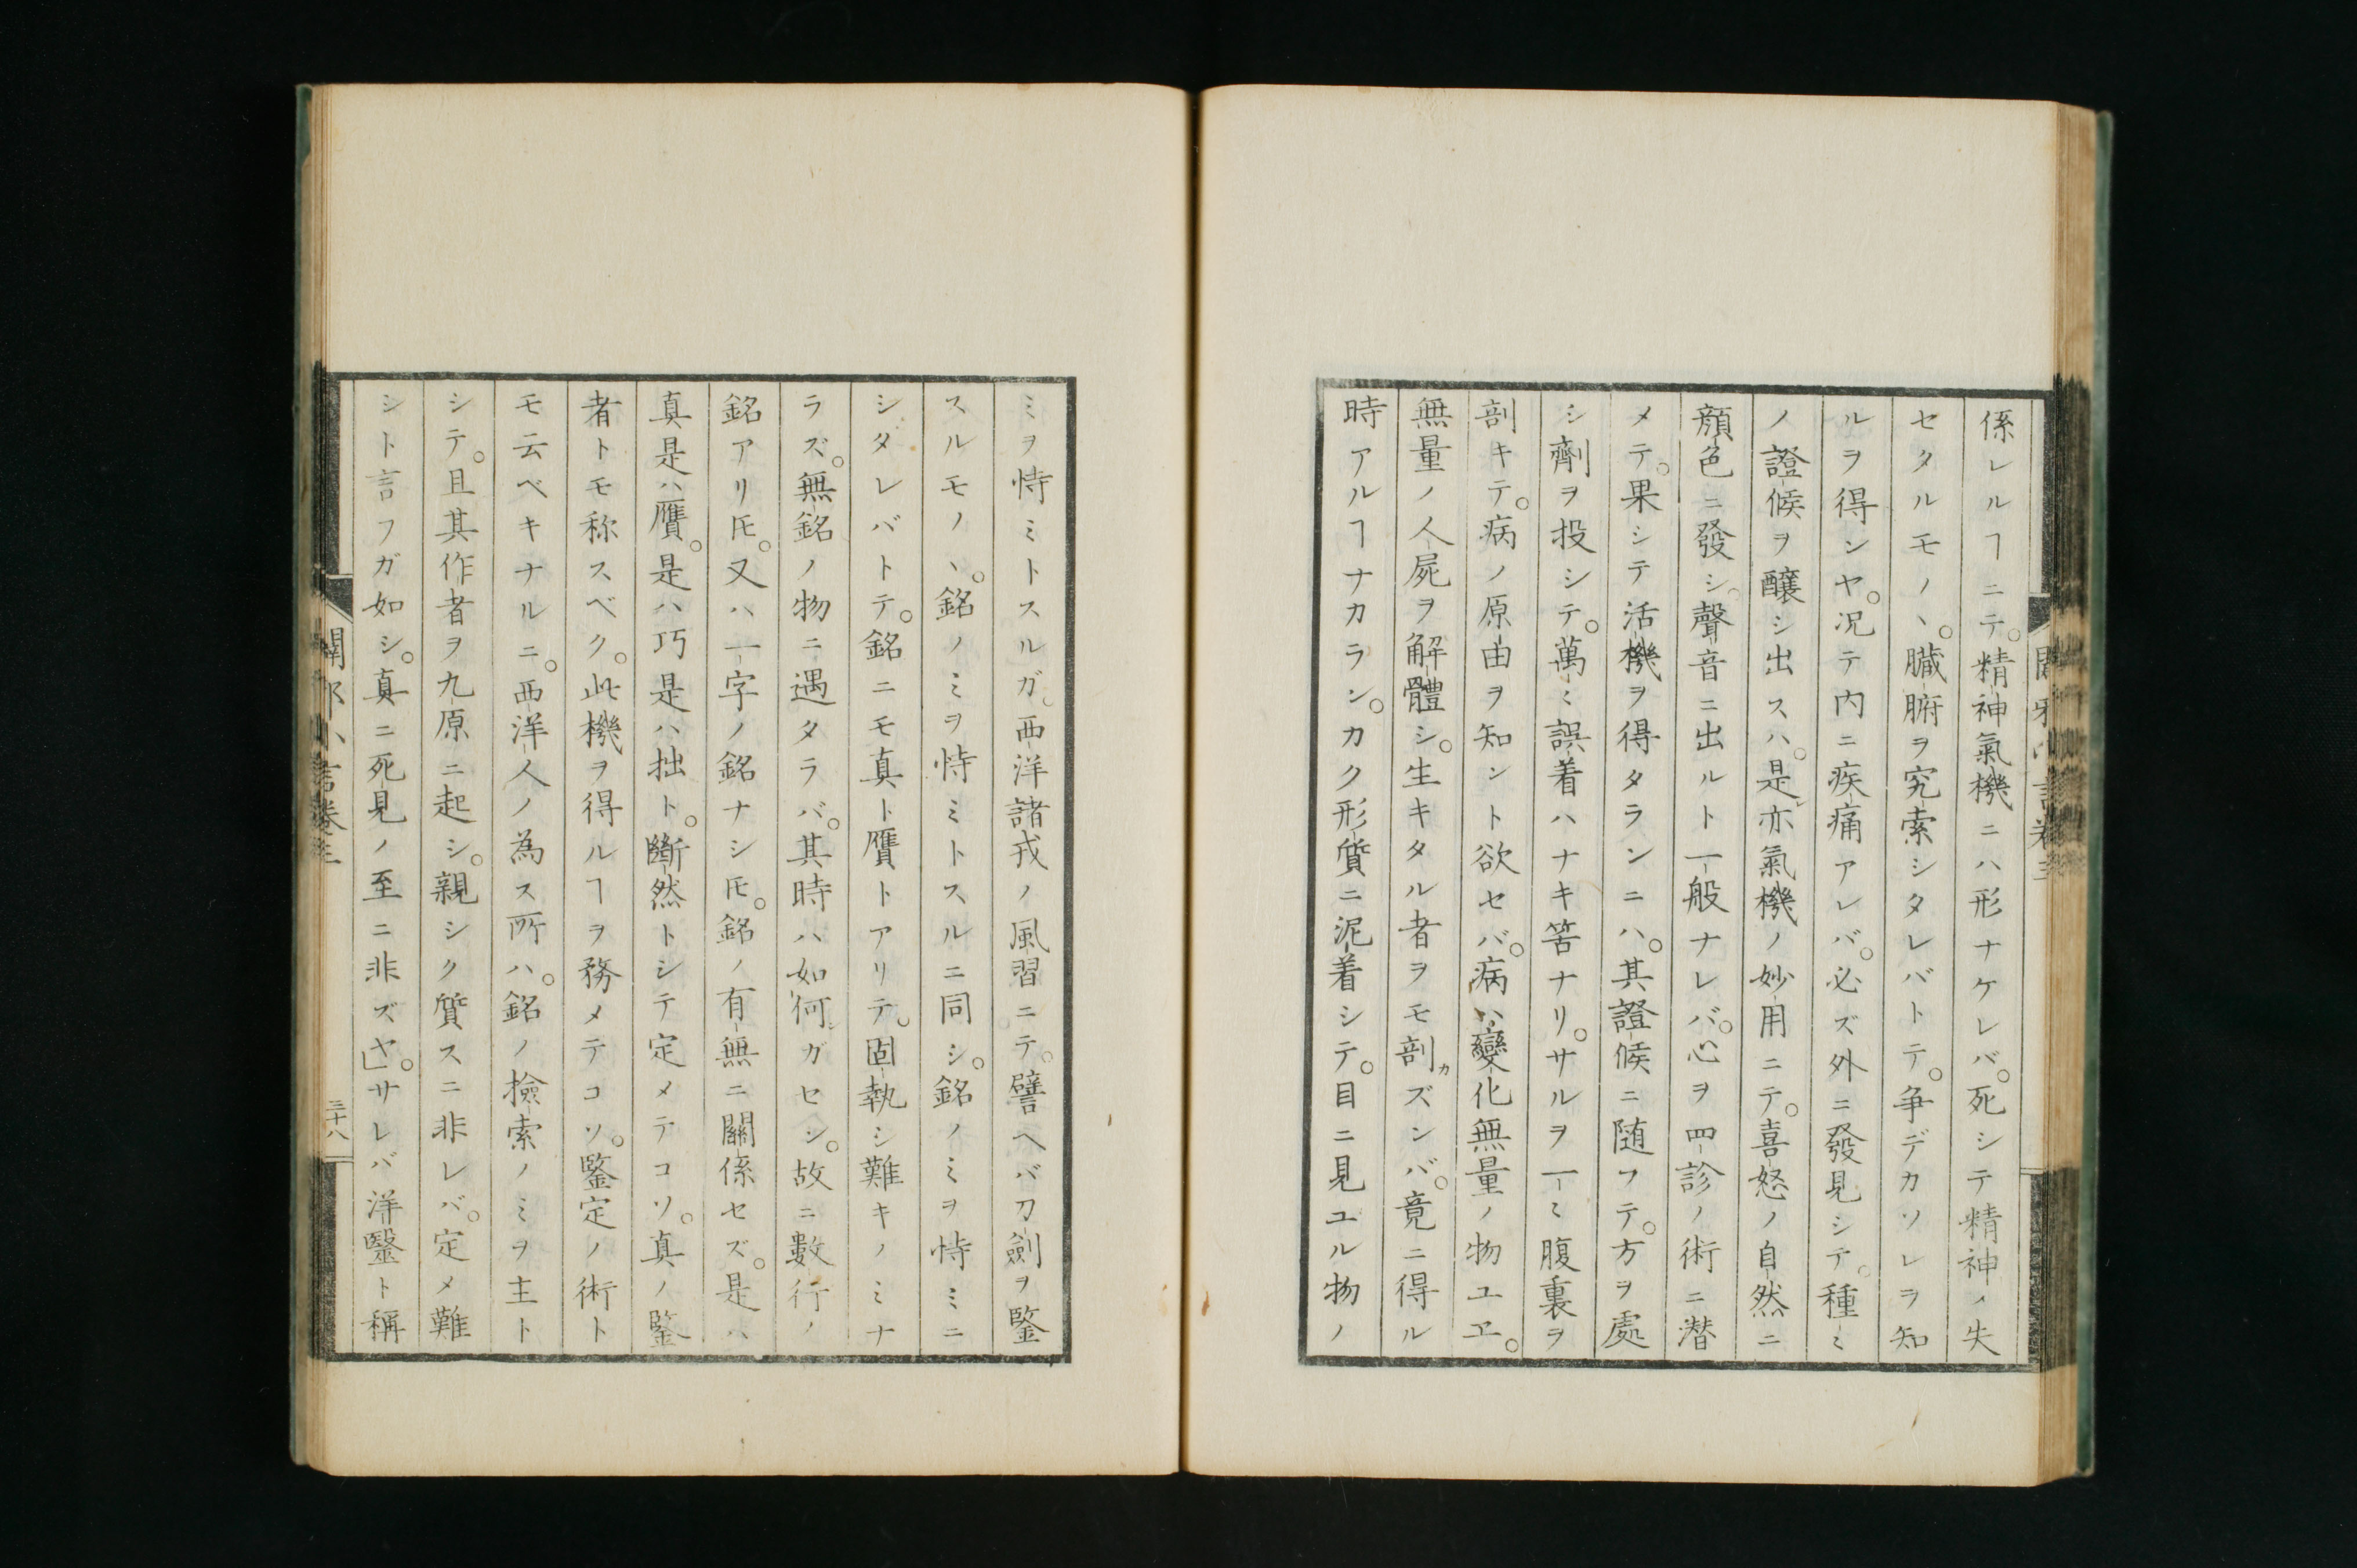 係レルヿニテ。精神氣機ニハ形ナケレバ。死シテ精神ノ失
セタルモノヽ。臓腑ヲ究索シタレバトテ。争デカソレラ知
ルヲ得ンヤ。况テ内ニ疾痛アレバ。必ズ外ニ發見シテ。種〻
ノ證候ヲ醸シ出スハ。是亦氣機ノ妙用ニテ。喜怒ノ自然ニ
顔色ニ發シ。聲音ニ出ルト一般ナレバ。心ヲ四診ノ術ニ潜
メテ。果シテ活機ヲ得タランニハ。其證候ニ随フテ。方ヲ處
シ劑ヲ投シテ。萬〻誤着ハナキ筈ナリ。サルヲ一〻腹裏ヲ
剖キテ。病ノ原由ヲ知ント欲セバ。病ハ變化無量ノ物ユヱ。
無量ノ人屍ヲ解體シ。生キタル者ヲモ剖カズンバ。竟ニ得ル
時アルヿナカラン。カク形質ニ泥着シテ。目ニ見ユル物ノ
ミヲ恃ミトスルガ。西洋諸戎ノ風習ニテ。譬ヘバ刀劍ヲ鑒
スルモノヽ。銘ノミヲ恃ミトスルニ同シ。銘ノミヲ恃ミニ
シタレバトテ。銘ニモ真ト贋トアリテ。固執シ難キノミナ
ラズ。無銘ノ物ニ遇タラバ。其時ハ如何ガセン。故ニ數行ノ
銘アリ𪜈。又ハ一字ノ銘ナシ𪜈。銘ノ有無ニ關係セズ。是ハ
真是ハ贋。是ハ巧是ハ拙ト。斷然トシテ定メテコソ。真ノ鑒
者トモ称スベク。此機ヲ得ルヿヲ務メテコソ。鑒定ノ術ト
モ云ベキナルニ。西洋人ノ為ス所ハ。銘ノ撿索ノミヲ主ト
シテ。且其作者ヲ九原ニ起シ。親シク質スニ非レバ。定メ難
シト言フガ如シ。真ニ死見ノ至ニ非ズヤ」。サレバ洋毉ト稱
闢邪小言卷三
三十八